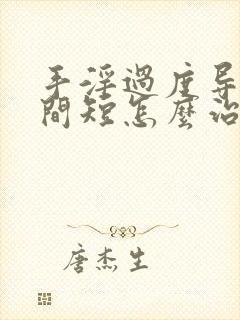 手淫過度导
間短怎麼治
唐杰生